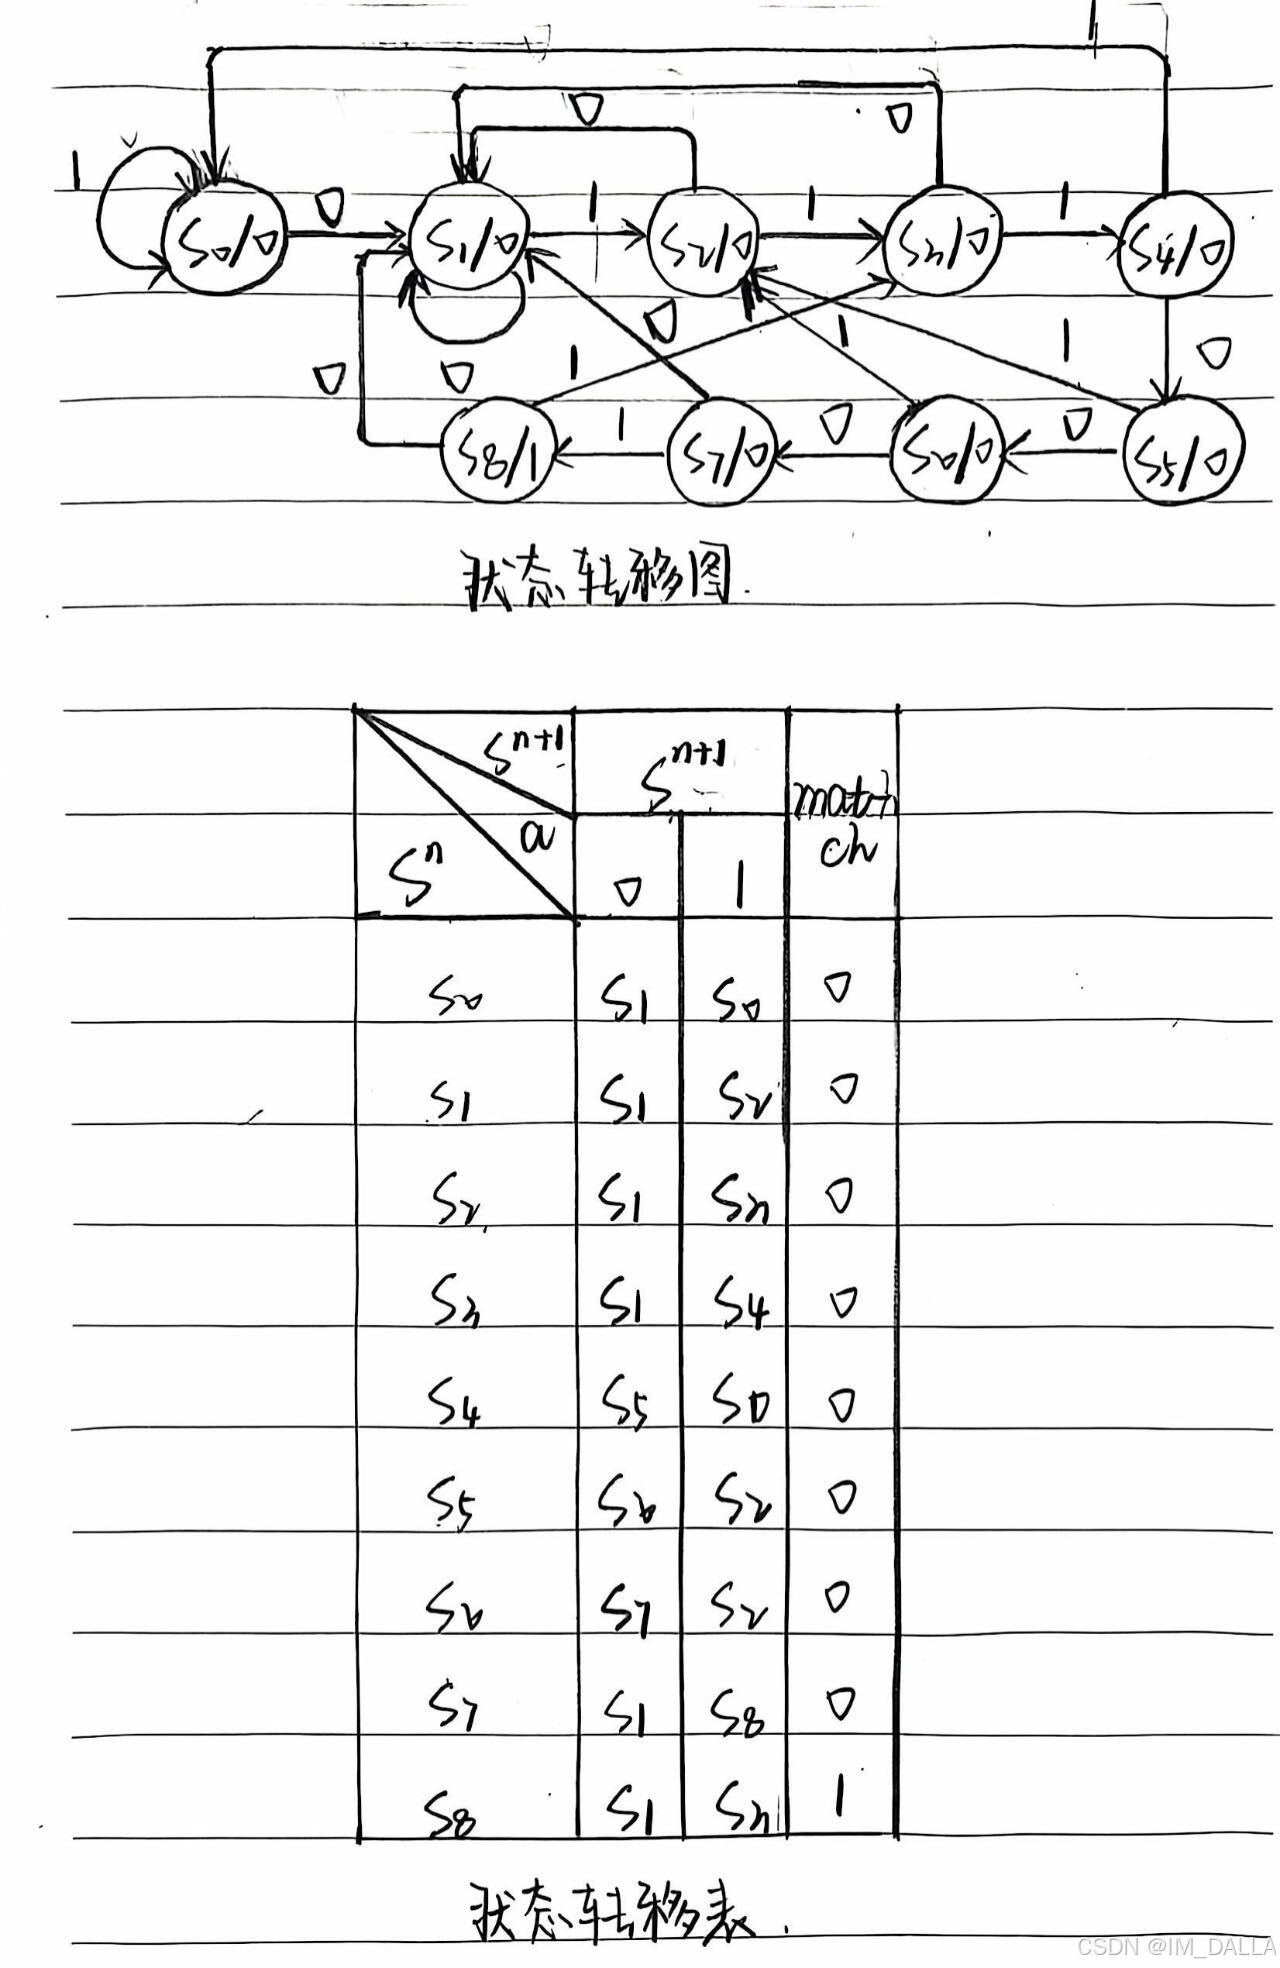 1
0
0
1
S0/0
0
S1/0
1
S2/0
1
S3/0
1
S4/0
0
0
0
1
1
1
0
S8/1
1
S7/0
0
S6/0
0
S5/0
状态转移图.
S^{n+1} S^{n+1} match
a
S^n 0 1
S0 S1 S0 0
S1 S1 S2 0
S2 S1 S3 0
S3 S1 S4 0
S4 S5 S0 0
S5 S6 S2 0
S6 S7 S2 0
S7 S1 S8 0
S8 S1 S3 1
状态转移表.
CSDN @IM_DALLA